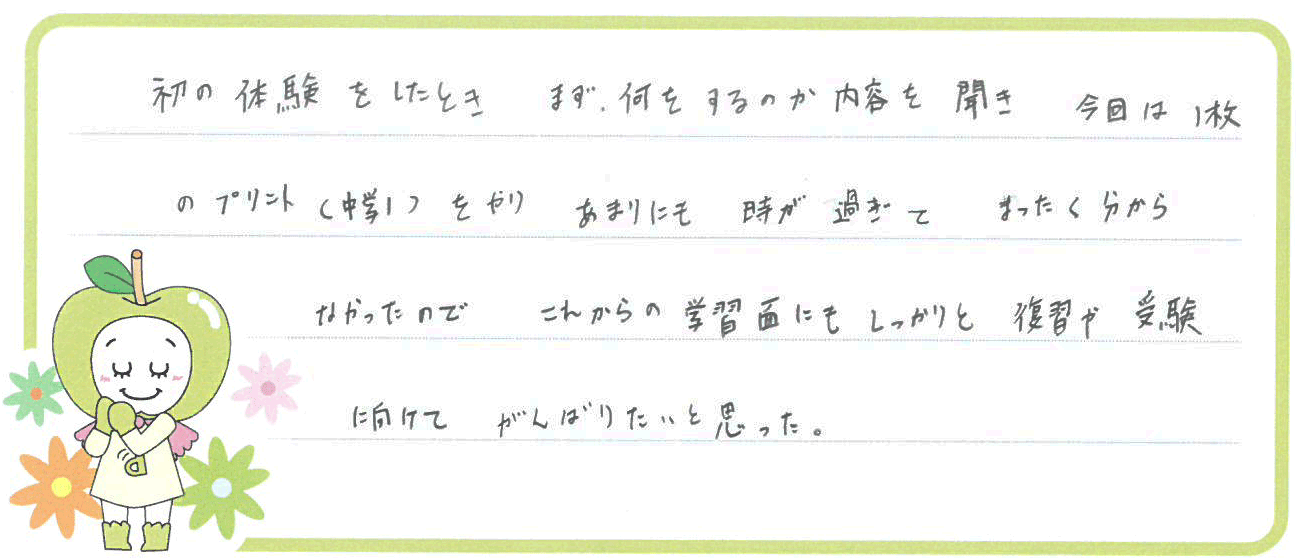 初の体験をしたとき まず、何をするのか内容を聞き 今回は1枚
のプリント(中学1)をやり あまりにも 時が過ぎて まったく分から
なかったので これからの学習面にもしっかりと 復習や 受験
に向けて がんばりたいと思った。